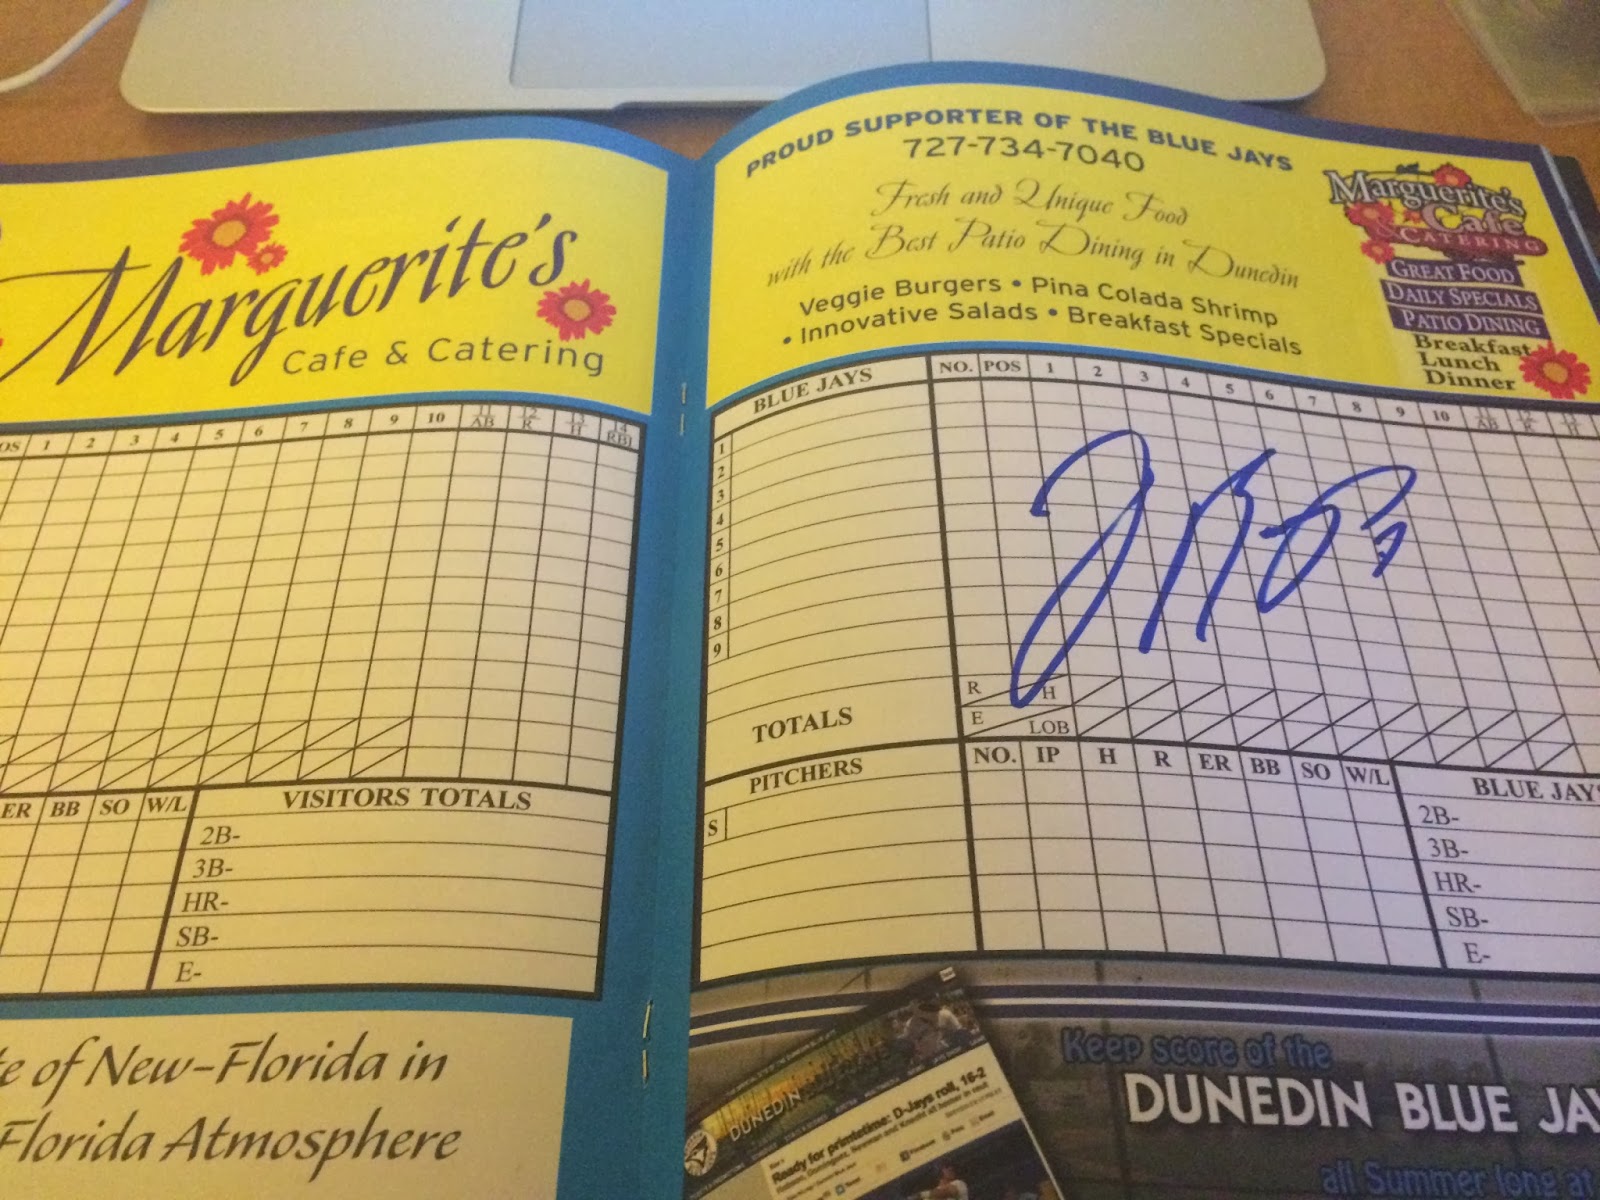 Marguerite's
Cafe & Catering
OS 1 2 3 4 5 6 7 8 9 10 11 AB 12 R 13 H 14 RBI
ER BB SO W/L VISITORS TOTALS
2B-
3B-
HR-
SB-
E-
te of New-Florida in
Florida Atmosphere
PROUD SUPPORTER OF THE BLUE JAYS
727-734-7040
Fresh and Unique Food
with the Best Patio Dining in Dunedin
Veggie Burgers • Pina Colada Shrimp
• Innovative Salads • Breakfast Specials
Marguerite's
Cafe
& CATERING
GREAT FOOD
DAILY SPECIALS
PATIO DINING
Breakfast
Lunch
Dinner
BLUE JAYS NO. POS 1 2 3 4 5 6 7 8 9 10 11 AB 12 R 13 H
1
2
3
4
5
6
7
8
9
R H
TOTALS E LOB
PITCHERS NO. IP H R ER BB SO W/L BLUE JAYS
S
2B-
3B-
HR-
SB-
E-
Keep score of the
DUNEDIN BLUE JAY
all Summer long at
DUNEDIN
Ready for primetime: D-Jays roll, 16-2